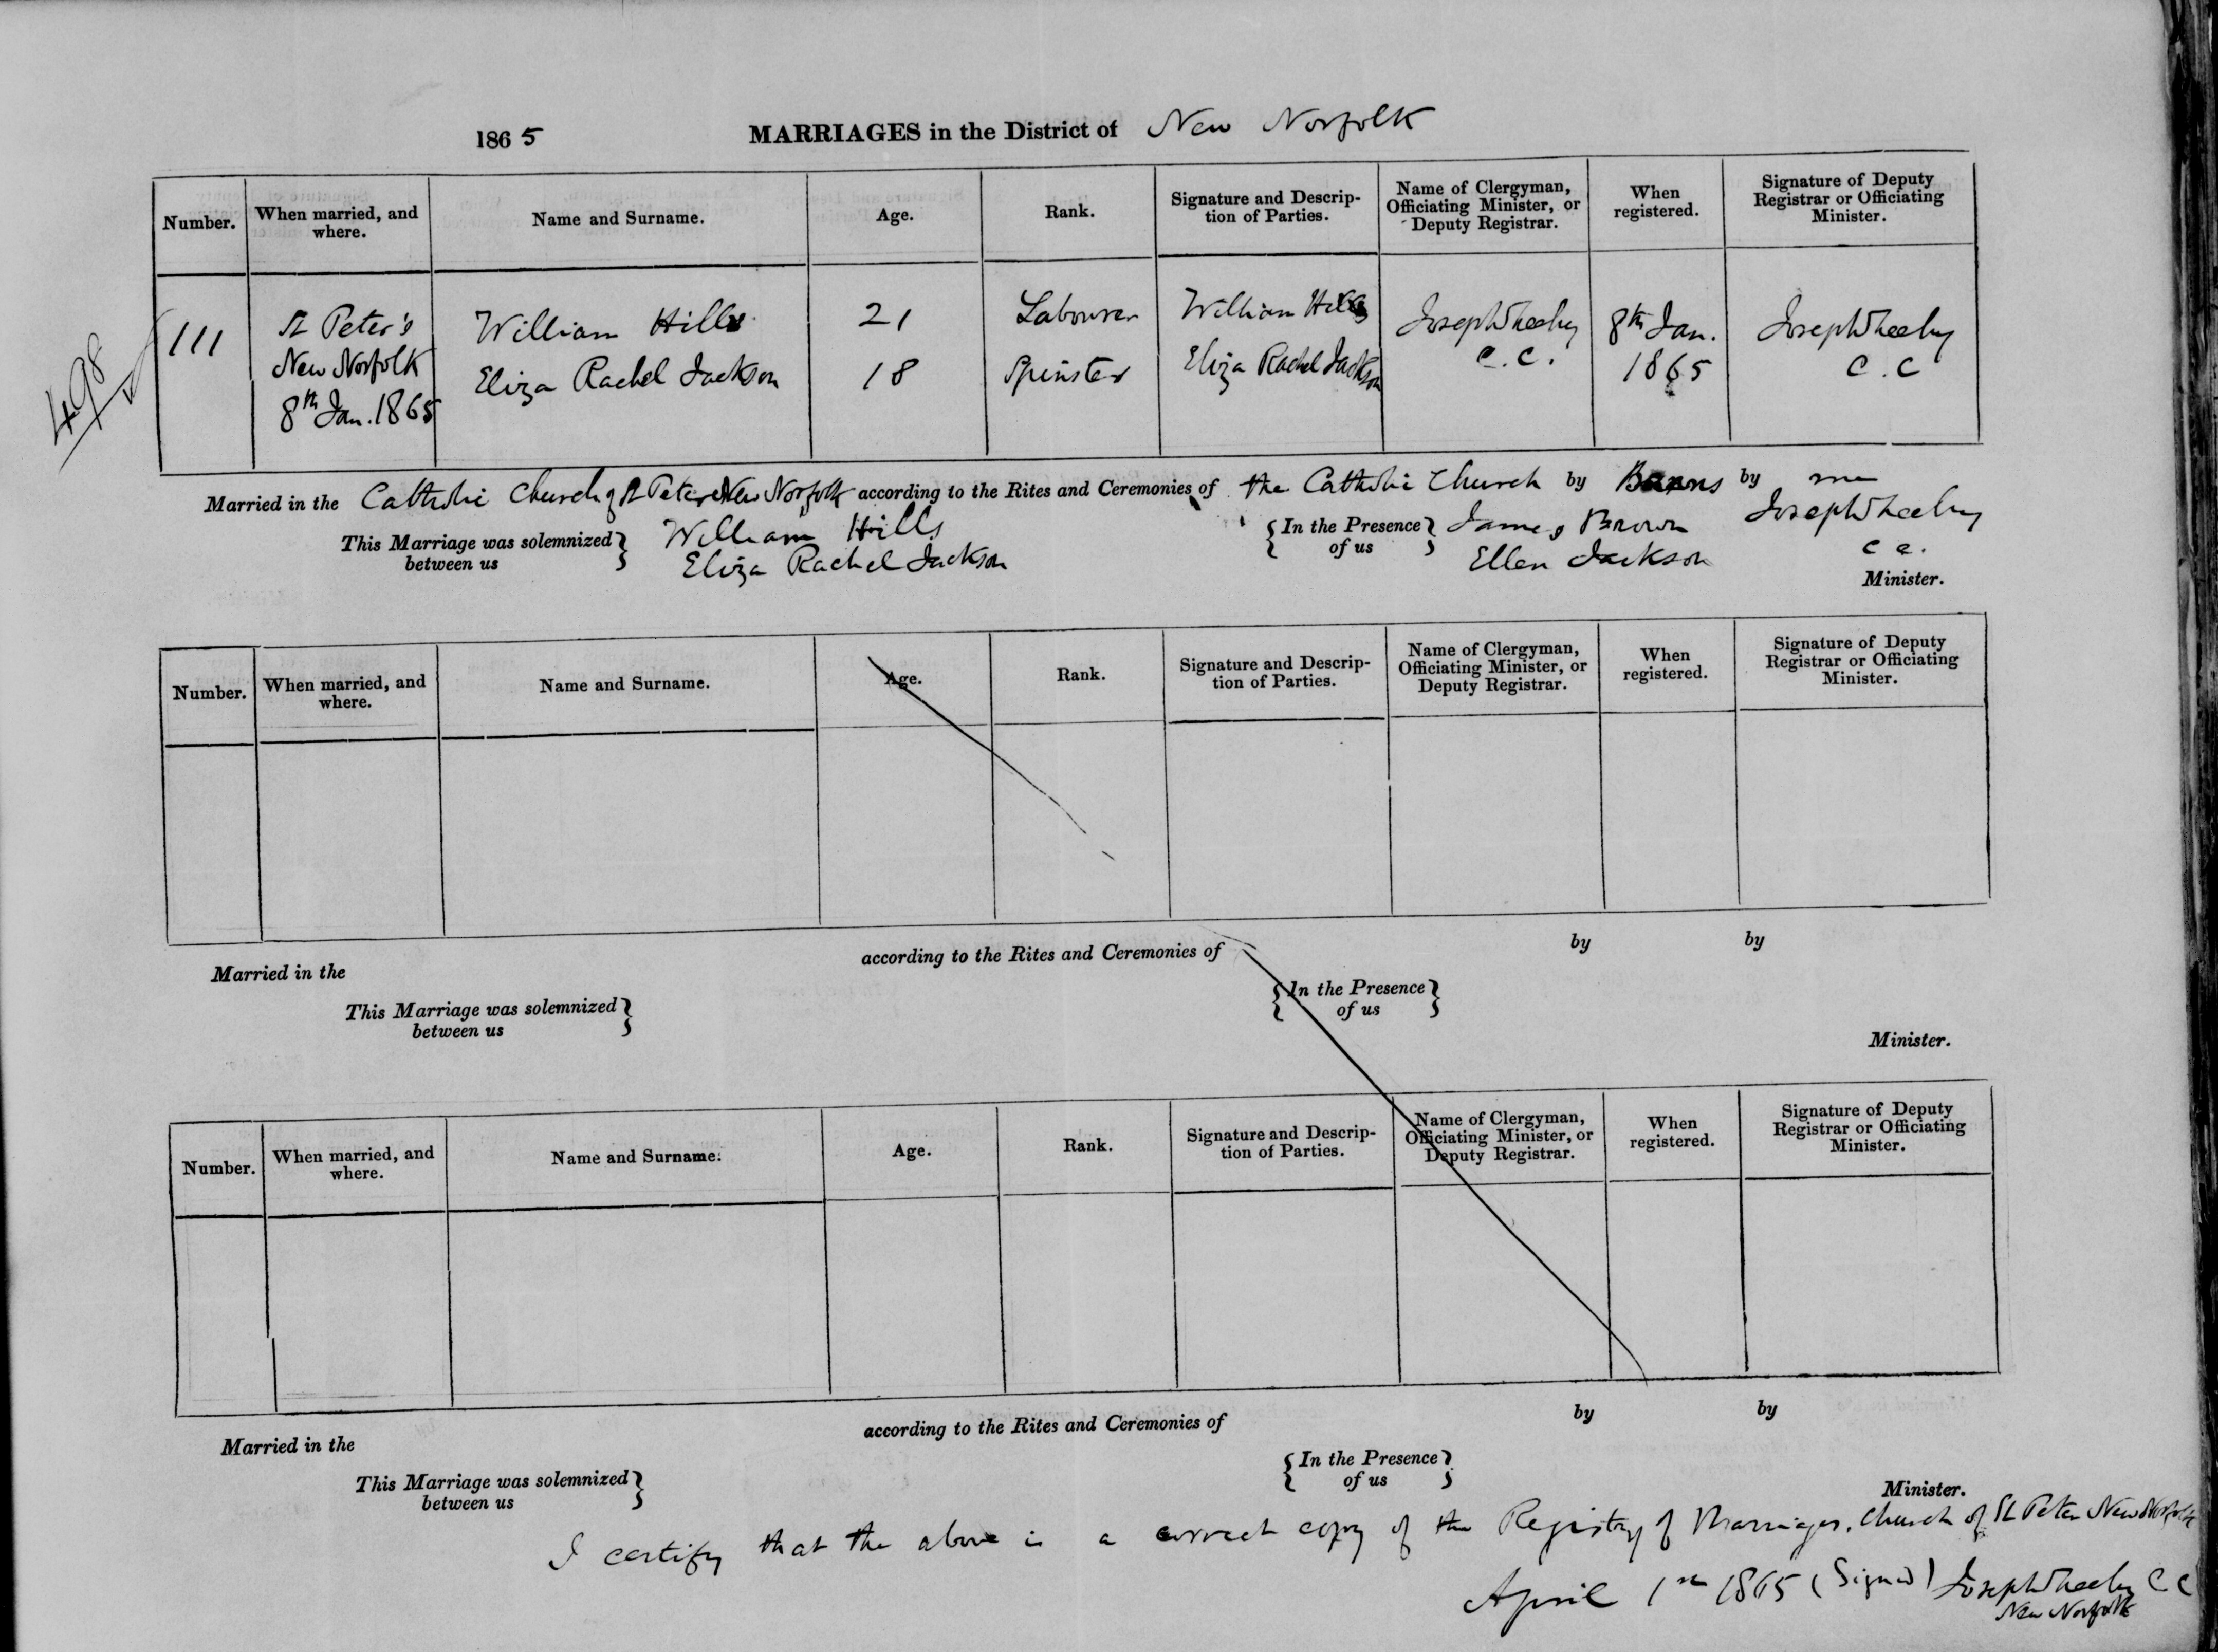 1865 MARRIAGES in the District of New Norfolk
Number. When married, and where. Name and Surname. Age. Rank. Signature and Description of Parties. Name of Clergyman, Officiating Minister, or Deputy Registrar. When registered. Signature of Deputy Registrar or Officiating Minister.
498
111 St Peter's William Hills 21 Labourer William Hills Joseph Sheehy 8th Jan. Joseph Sheehy
New Norfolk Eliza Rachel Jackson 18 Spinster Eliza Rachel Jackson C.C. 1865 C.C
8th Jan. 1865
Married in the Catholic Church of St Peter New Norfolk according to the Rites and Ceremonies of the Catholic Church by Banns by me
This Marriage was solemnized between us William Hills In the Presence of us James Brown Joseph Sheehy
Eliza Rachel Jackson Ellen Jackson C C.
Minister.
Number. When married, and where. Name and Surname. Age. Rank. Signature and Description of Parties. Name of Clergyman, Officiating Minister, or Deputy Registrar. When registered. Signature of Deputy Registrar or Officiating Minister.
Married in the according to the Rites and Ceremonies of by by
This Marriage was solemnized between us In the Presence of us
Minister.
Number. When married, and where. Name and Surname. Age. Rank. Signature and Description of Parties. Name of Clergyman, Officiating Minister, or Deputy Registrar. When registered. Signature of Deputy Registrar or Officiating Minister.
Married in the according to the Rites and Ceremonies of by by
This Marriage was solemnized between us In the Presence of us
Minister.
I certify that the above is a correct copy of the Registry of Marriages. Church of St Peter New Norfolk
April 1st 1865 (Signed) Joseph Sheehy C C
New Norfolk